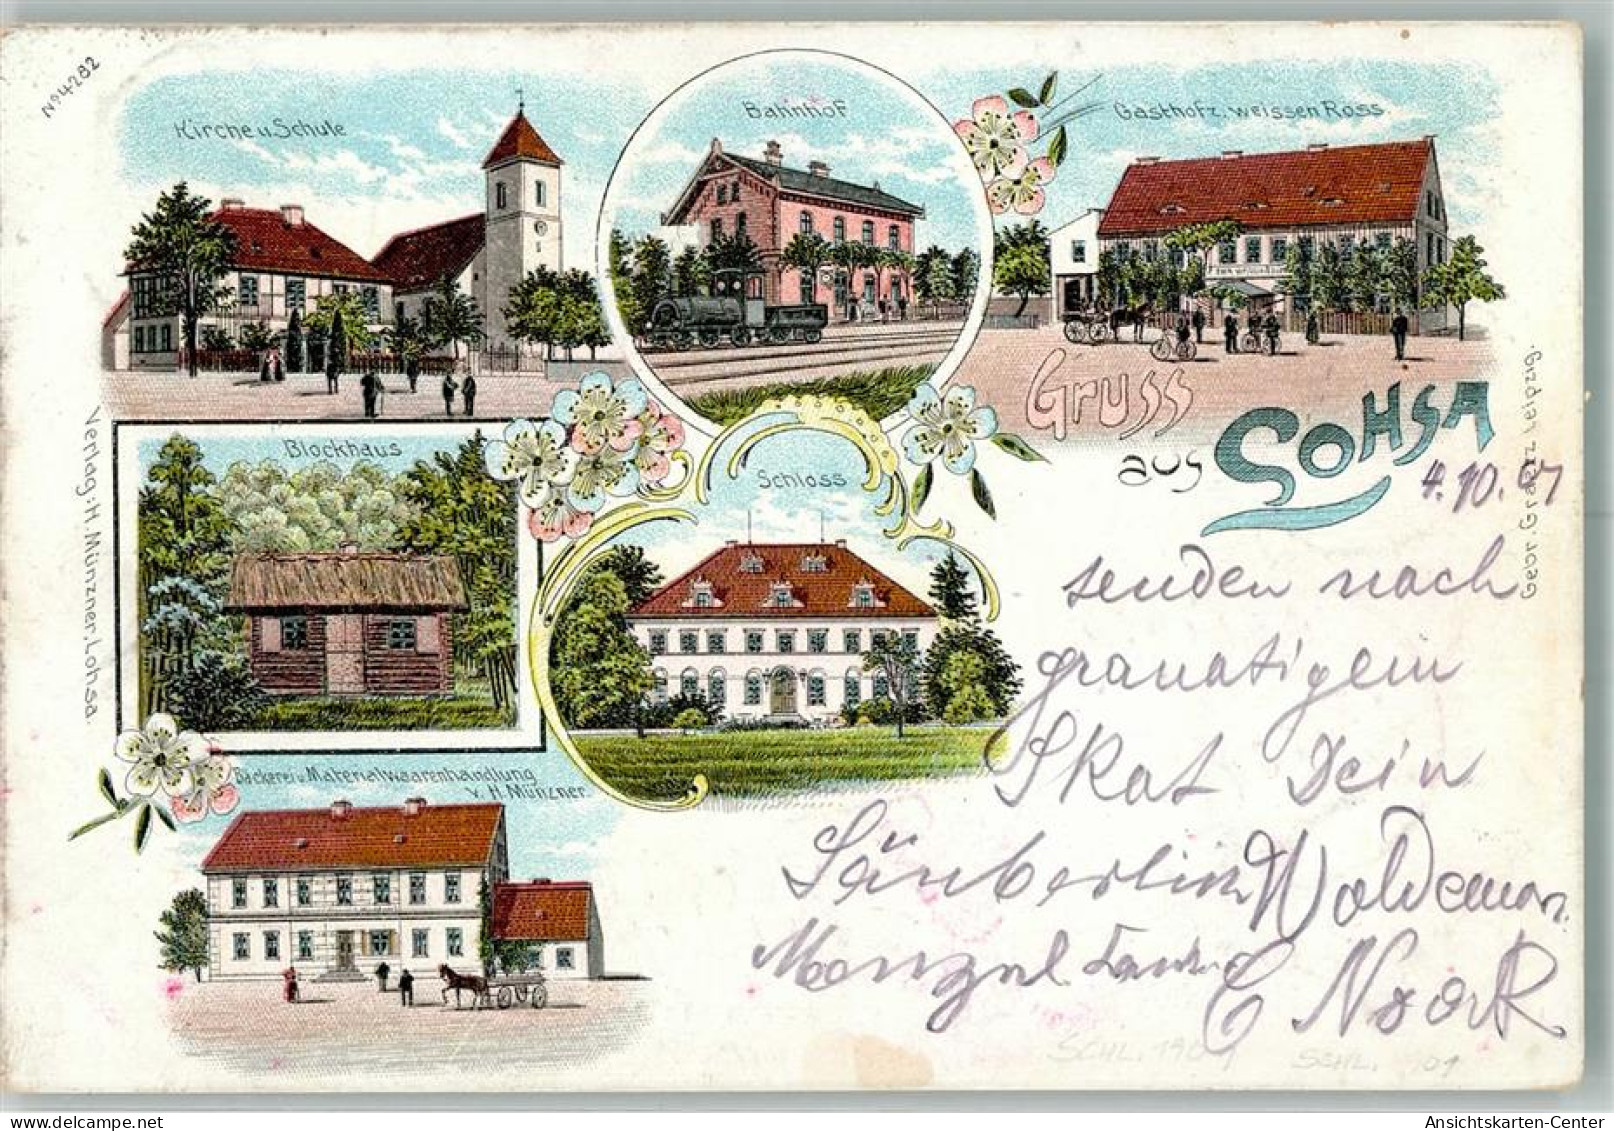 No 4282
Kirche u. Schule
Bahnhof
Gasthof z. weissen Ross.
Gruss
aus LOHSA
4.10.01
Blockhaus
Schloss
Verlag: H. Münzner, Lohsa.
Gebr. Graetz Leipzig.
Bäckerei u. Materialwaarenhandlung
v. H. Münzner.
senden nach
granatigem
Skat Dein
Säuberlich Woldemar
Menzel
SCHL. 1901
SCHL. 01
Ansichtskarten-Center